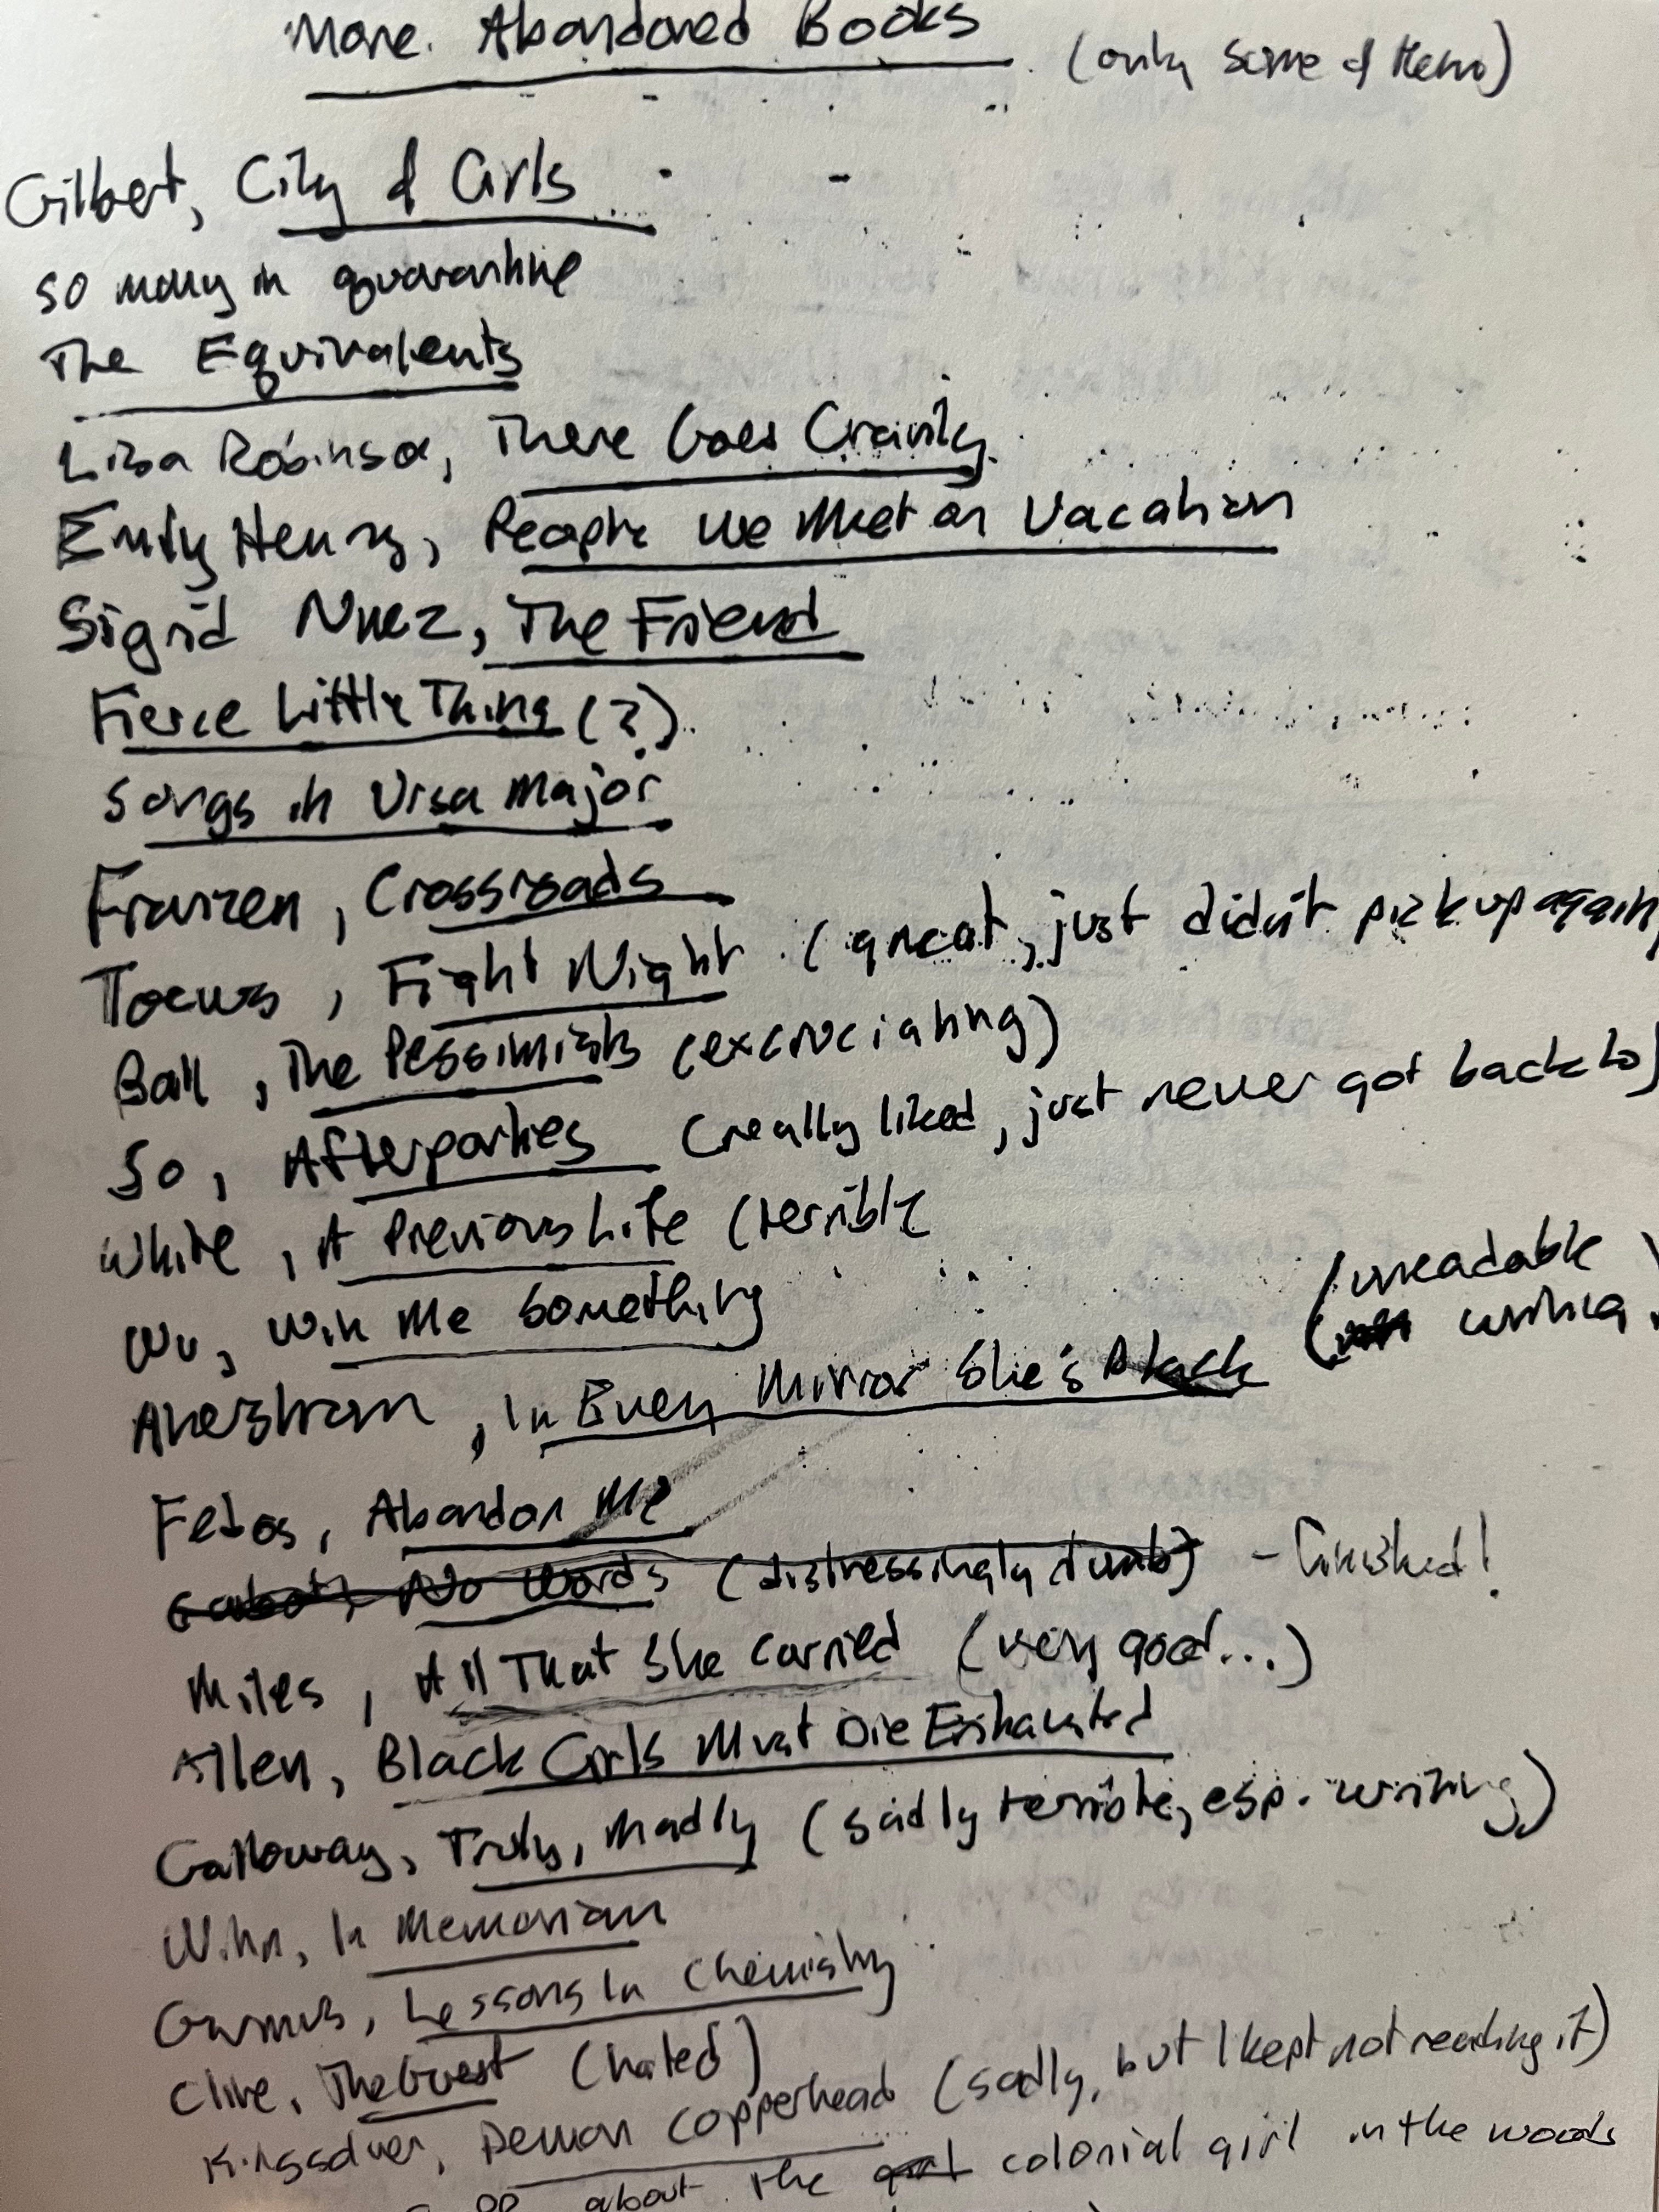 More Abandoned Books (only some of them)
Gilbert, City of Girls
so many in quarantine
The Equivalents
Lisa Robinson, There Goes Gravity
Emily Henry, People We Meet on Vacation
Sigrid Nuez, The Friend
Fierce Little Thing (?)
Songs in Ursa Major
Franzen, Crossroads
Toews, Fight Night (great, just didn't pick up again)
Ball, The Pessimists (excruciating)
So, Afterparties (really liked, just never got back to)
White, A Previous Life (terrible
Wu, Win Me Something
Akerstrom, In Every Mirror She's Black (unreadable writing)
Febos, Abandon Me
Cabot, No Words (distressingly dumb) - finished!
Miles, All That She Carried (very good...)
Allen, Black Girls Must Die Exhausted
Galloway, Truly, Madly (sadly terrible, esp. writing)
Winn, In Memoriam
Garmus, Lessons In Chemistry
Cline, The Guest (hated)
Kingsolver, Demon Copperhead (sadly, but I kept not reading it)
about the colonial girl in the woods